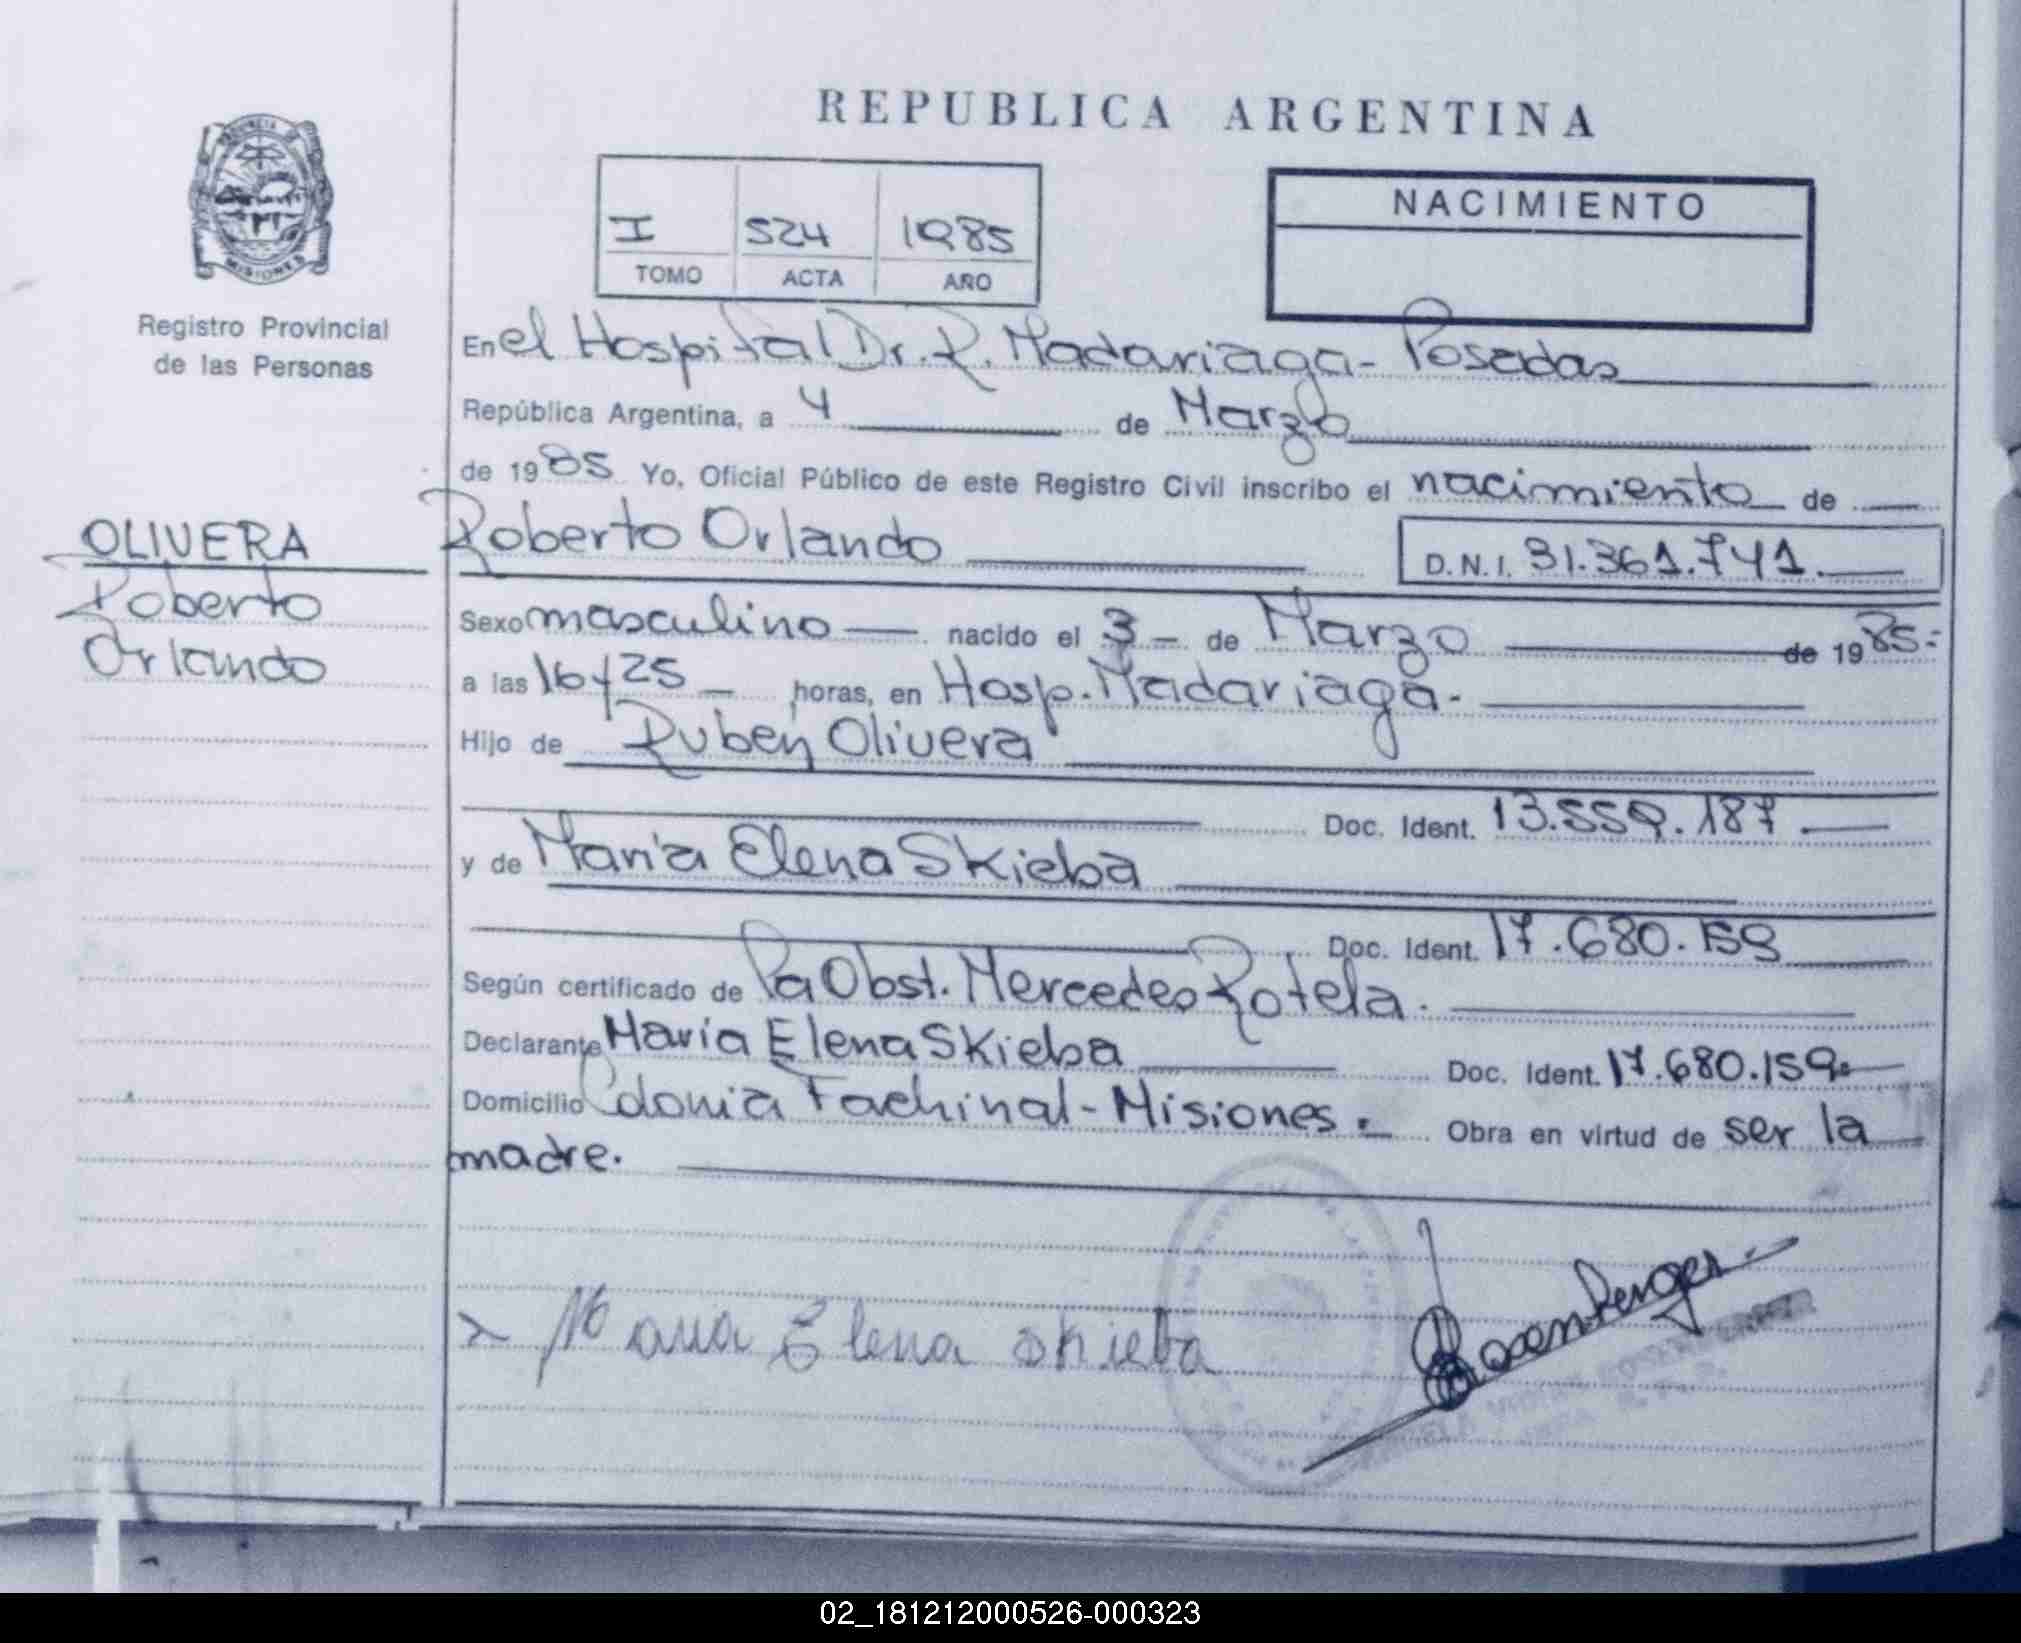 REPUBLICA ARGENTINA
PROVINCIA DE
MISIONES
Registro Provincial
de las Personas
I 524 1985
TOMO ACTA AÑO
NACIMIENTO
En el Hospital Dr. R. Madariaga - Posadas
República Argentina, a 4 de Marzo
de 1985 Yo, Oficial Público de este Registro Civil inscribo el nacimiento de
OLIVERA
Roberto
Orlando
Roberto Orlando D.N.I. 31.361.741.
Sexo masculino nacido el 3 de Marzo de 1985.
a las 16y25 horas, en Hosp. Madariaga.
Hijo de Ruben Olivera
Doc. Ident. 13.559.187
y de María Elena Skieba
Doc. Ident. 17.680.159
Según certificado de Pa Obst. Mercedes Rotela.
Declarante María Elena Skieba Doc. Ident. 17.680.159.
Domicilio Colonia Fachinal - Misiones. Obra en virtud de ser la
madre.
Maria Elena Skieba
Rosenberger
02_181212000526-000323